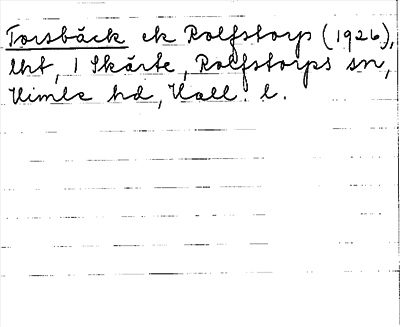 Torsbäck ek Rolfstorp (1926),
lht, 1 Skärte, Rolfstorps sn,
Himle hd, Hall. l.